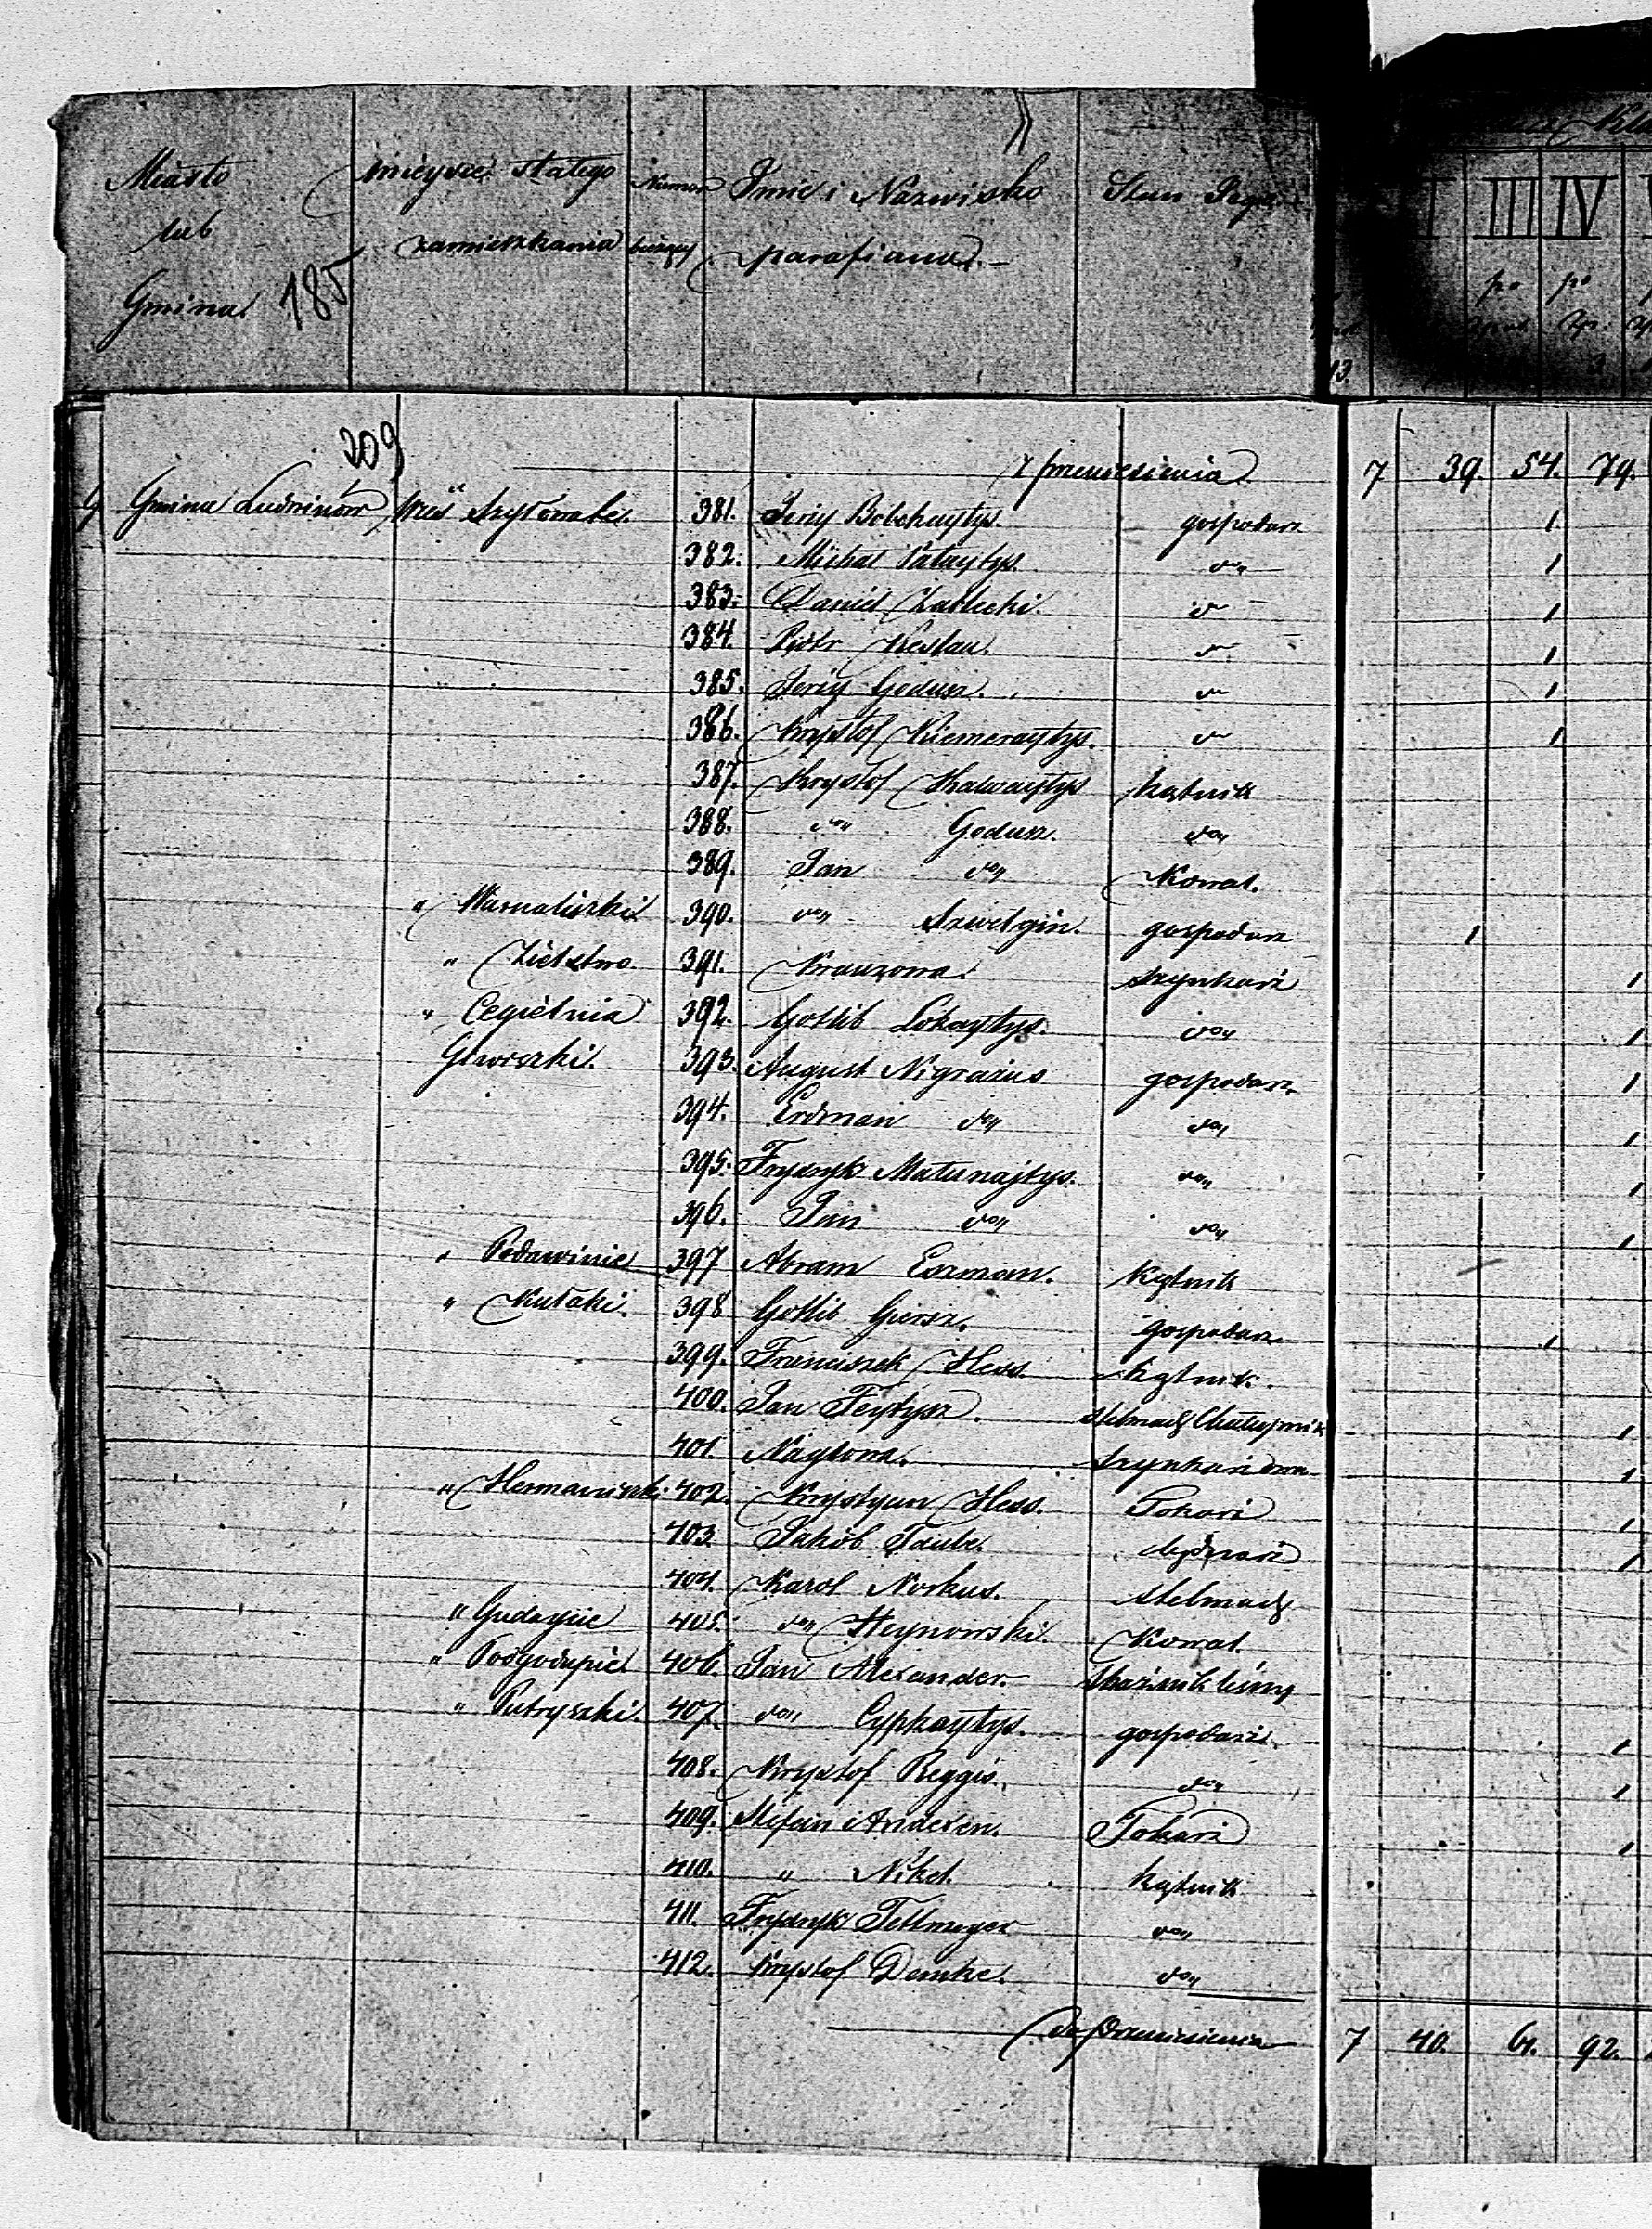 Miasto lub Gmina 185
mieysce stałego zamieszkania
Numer bieżący
Imie i Nazwisko parafianina
Stan
III IV
po po
3
209
Z przeniesienia 7 39. 54. 79.
9 Gmina Ludwinów Wieś 381. Jerzy Bobchaytys. gospodarz 1
382. Michał Pataytys. do 1
383. Daniel Zablecki. do 1
384. Piotr Kreslau. do 1
385. Jerzy Godusz. do 1
386. Krysztof Niemeraytys. do 1
387. Krysztof Skalwaytys kątnik
388. do Godusz. do
389. Jan do Kowal.
" Warnaliszki 390. do Szwelgin. gospodarz 1
" 391. Krauzowa. szynkarż 1
" Cegielnia 392. Gotlib Lokaytys. do 1
Giwiszki. 393. August Nigrazius gospodarz 1
394. Erdman do do 1
395. Frydryk Matunajtys. do 1
396. Jan do do 1
" Podawinie 397 Abram Eszman. Kątnik
" Kułaki. 398 Gotlib Giersz. gospodarz 1
399. Franciszek Hess. Kątnik.
400. Jan Feytysz. stelmach Chałupnik 1
401. Naglowa. Szynkarzowa 1
" Hermaniszki 402. Krystyan Hess. Tokarż 1
403. Jakób Taube. 1
404. Karol Norkus. stelmach
" Gudaycie 405. do Heynowski. Kowal.
" Podgodupie. 406. Jan Alexander. Strażnik leśny
" Putryszki. 407. do Cypkaytys. gospodarż 1
408. Krysztof Reggis. do 1
409. Stefan Andexen. Tokarż 1
410. " Nikel. Kątnik
411. Frydryk Tellmeyer do
412. Krysztof Demke. do
Do przeniesienia 7 40. 61. 92.